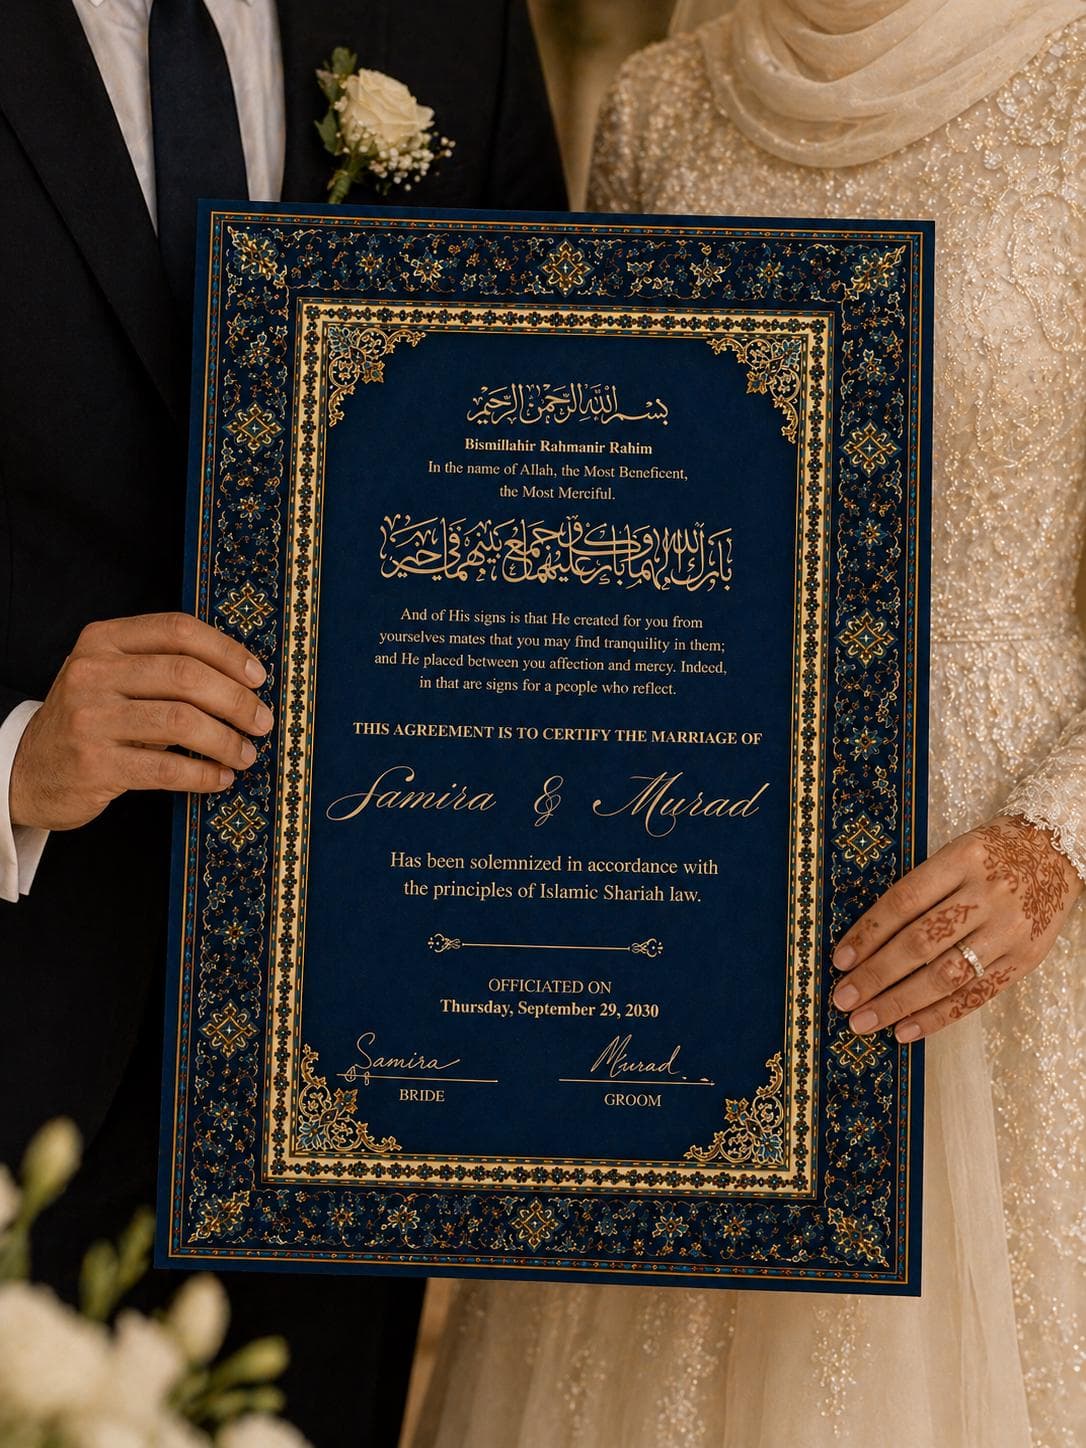 بسم الله الرحمن الرحيم
Bismillahir Rahmanir Rahim
In the name of Allah, the Most Beneficent,
the Most Merciful.
بارك الله لهما وبارك عليهما وجمع بينهما في خير
And of His signs is that He created for you from
yourselves mates that you may find tranquility in them;
and He placed between you affection and mercy. Indeed,
in that are signs for a people who reflect.
THIS AGREEMENT IS TO CERTIFY THE MARRIAGE OF
Samira & Murad
Has been solemnized in accordance with
the principles of Islamic Shariah law.
OFFICIATED ON
Thursday, September 29, 2030
Samira Murad
BRIDE GROOM